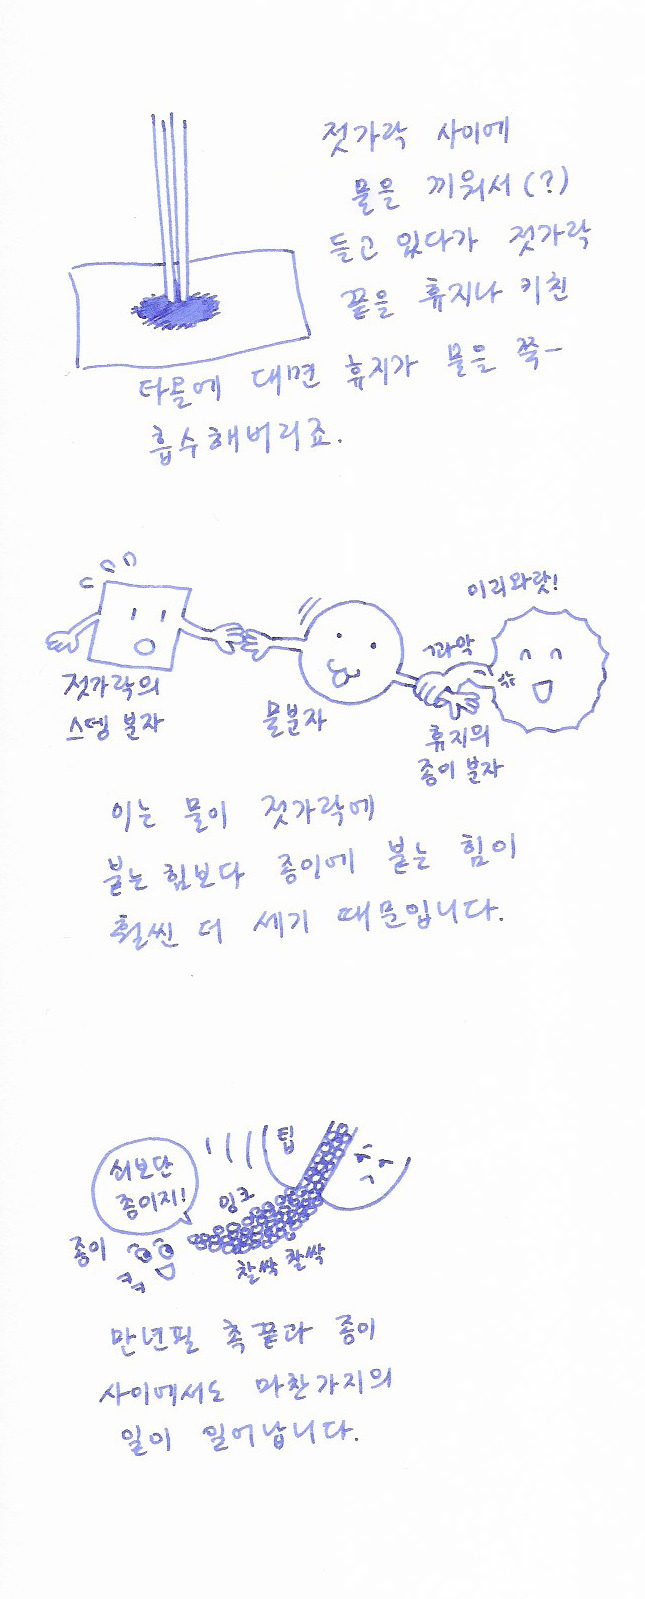 젓가락 사이에
물을 끼워서(?)
들고 있다가 젓가락
끝을 휴지나 키친
타올에 대면 휴지가 물을 쭉-
흡수해버리죠.
이리와랏!
꽈악
젓가락의
스뎅 분자
물분자
휴지의
종이 분자
이는 물이 젓가락에
붙는 힘보다 종이에 붙는 힘이
훨씬 더 세기 때문입니다.
팁
쇠보단
종이지!
잉크
종이
찰싹 찰싹
ㅋㅋ
만년필 촉끝과 종이
사이에서도 마찬가지의
일이 일어납니다.